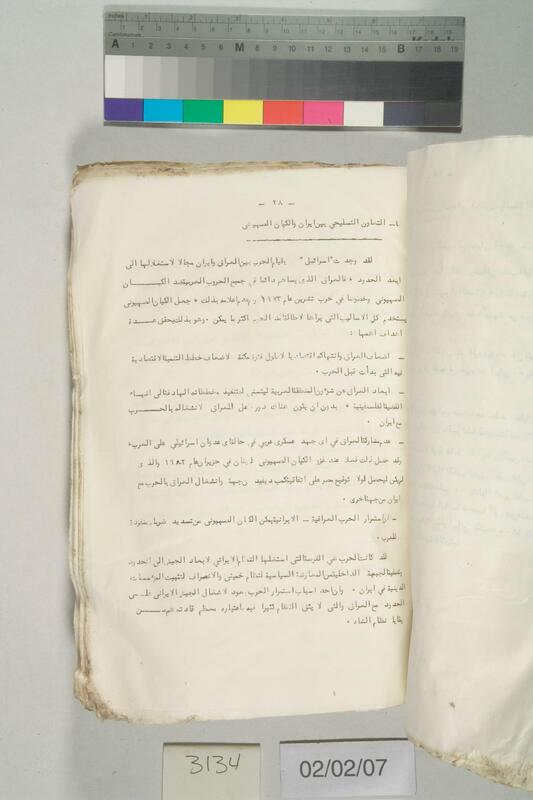 inches
Centimetres
A 1 2 3 4 5 6 M 8 9 10 11 12 13 14 15 B 17 18 19
Kodak
- ٢٨ -
أ- التعاون التسليحي بين ايران والكيان الصهيوني
لقد وجدت "اسرائيل" بقيام الحرب بين العراق وايران مجالا لاستغلالها الى
ابعد الحدود ، فالعراق الذي يساهم دائما في جميع الحروب العربية ضد الكيـــان
الصهيوني وخصوصا في حرب تشرين عام ١٩٧٣ ، جعل الكيان الصهيوني
يستخدم كل الاساليب التي يراها لاطالة امد الحرب اكثر ما يمكن . وهو بذلك يحقق عـــدة
اهداف اهمها :
- اضعاف العراق وانتهاكه اقتصاديا لاطول فترة ممكنة لاضعاف خطط التنمية الاقتصادية
فيه التي بدأت قبل الحرب .
- ابعاد العراق عن شؤون المنطقة العربية ليتسنى تنفيذ مخططاته الهادفة الى انهاء
القضية الفلسطينية ، بدون ان يكون هناك دور للعراق لانشغاله بالحـــرب
مع ايران .
- عدم مشاركة العراق في اي جهد عسكري عربي في حالة اي عدوان اسرائيلي على العرب
وقد حصل ذلك فعلا عند غزو الكيان الصهيوني لبنان في حزيران عام ١٩٨٢ والذي
لم يكن ليحصل لولا توقيع مصر على اتفاقية كمب ديفيد من جهة وانشغال العراق بالحرب مع
ايران من جهة اخرى .
- ان استمرار الحرب العراقية - الايرانية يمكن الكيان الصهيوني من تسديد ضربات
للعرب .
لقد كانت الحرب هي الفرصة التي استغلها النظام الايراني لابعاد الجيش الى الحدود
وتصفية الجبهة الداخلية من المعارضة السياسية لنظام خميني والانصراف لتثبيت المؤسسات
الدينية في ايران . وان احد اسباب استمرار الحرب هو لاشغال الجيش الايراني على
الحدود مع العراق والتي لا يثق النظام كثيرا فيه باعتباره معظم قادته هم مـــن
بقايا نظام الشاه .
3134
02/02/07